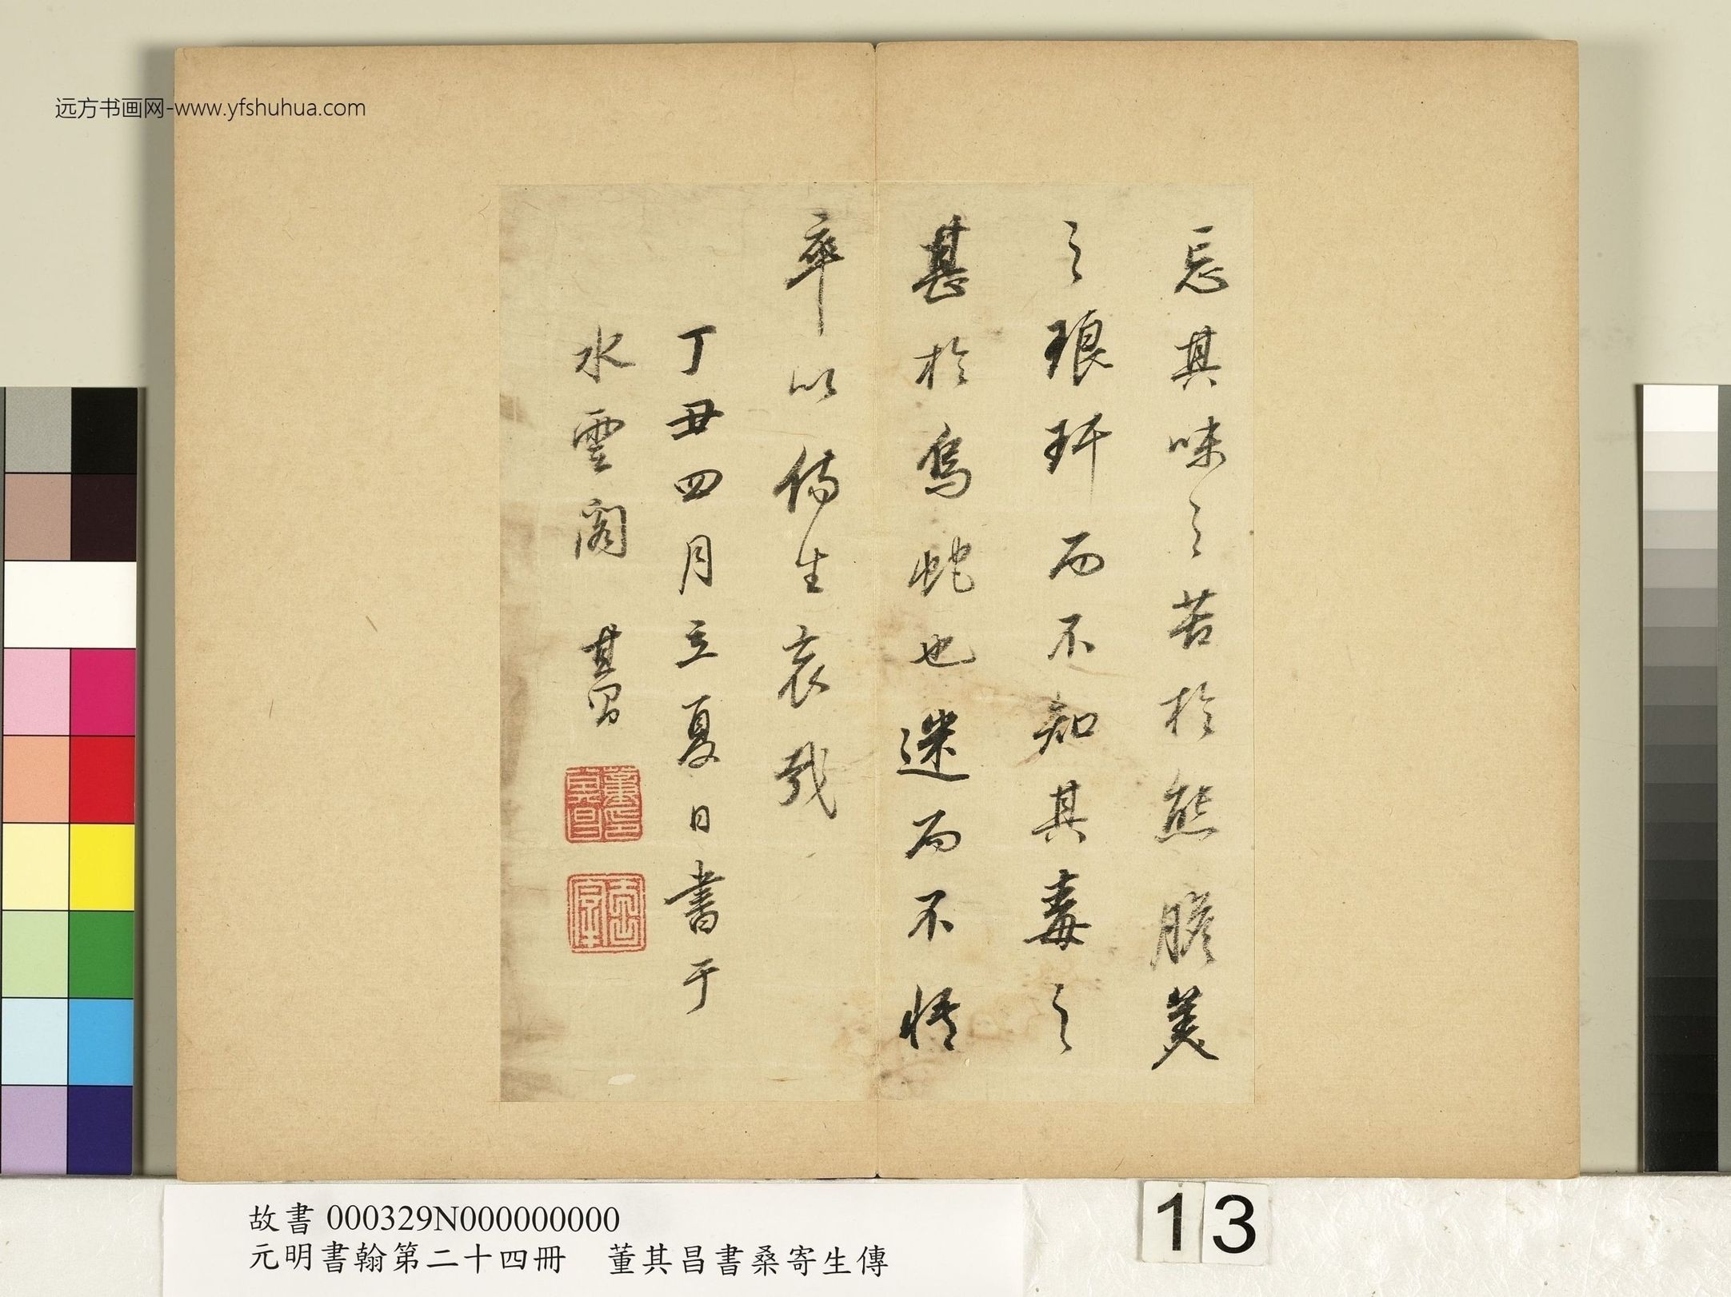 远方书画网-www.yfshuhua.com
忘其味之苦於熊膽美
之琅玕而不知其毒之
甚於烏蛇也迷而不悟
卒以傷生哀哉
丁丑四月立夏日書于
水雲閣 其昌
故書 000329N000000000
元明書翰第二十四冊 董其昌書桑寄生傳
13